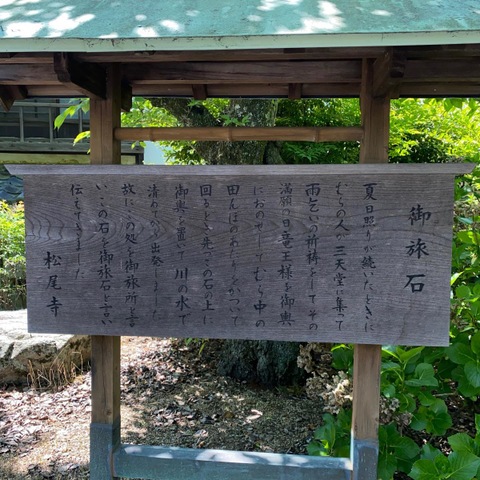 御旅石
夏日照りが続いたときに
むらの人々三天堂に集って
雨乞いの祈祷をしてその
満願の日竜王様を御輿
におのせしてむら中の
田んぼのあたりをかついで
回るとき先づこの石の上に
御輿を置いて川の水で
清めてから出発しました
故にこの処を御旅所と言
いこの石を御旅石と言い
伝えてきました
松尾寺